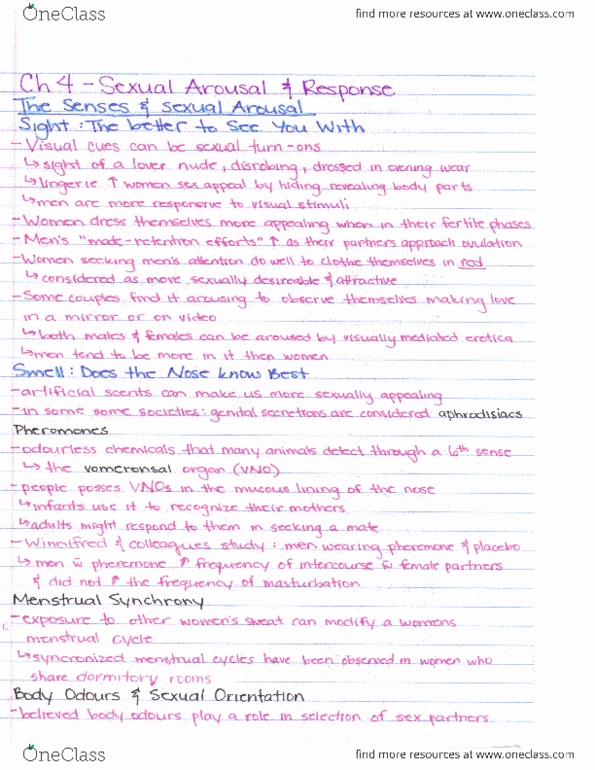 OneClass find more resources at www.oneclass.com
Ch 4 - Sexual Arousal & Response
The Senses & Sexual Arousal
Sight: The better to See You With
- Visual cues can be sexual turn-ons
↳ sight of a lover nude, disrobing, dressed in evening wear
↳ lingerie ↑ women sex appeal by hiding revealing body parts
↳ men are more responsive to visual stimuli
- Women dress themselves more appealing when in their fertile phases
- Men's "mate-retention efforts" ↑ as their partners approach ovulation
- Women seeking men's attention do well to clothe themselves in red
↳ considered as more sexually desireable & attractive
- Some couples find it arousing to observe themselves making love
in a mirror or on video
↳ both males & females can be aroused by visually mediated erotica
↳ men tend to be more in it then women
Smell: Does the Nose know Best
- artificial scents can make us more sexually appealing
- in some some societies: genital secretions are considered aphrodisiacs
Pheromones
- odourless chemicals that many animals detect through a 6th sense
↳ the vomeronsal organ (VNO)
- people posses VNOs in the mucous lining of the nose
↳ infants use it to recognize their mothers
↳ adults might respond to them in seeking a mate
- Winnifred & colleagues study: men wearing pheromone & placebo
↳ men w̄ pheromone ↑ frequency of intercourse w̄ female partners
& did not ↑ the frequency of masturbation
Menstrual Synchrony
- exposure to other women's sweat can modify a womens
menstrual cycle
↳ syncronized menstrual cycles have been observed in women who
share dormitory rooms
Body Odours & Sexual Orientation
- believed body odours play a role in selection of sex partners
OneClass find more resources at www.oneclass.com